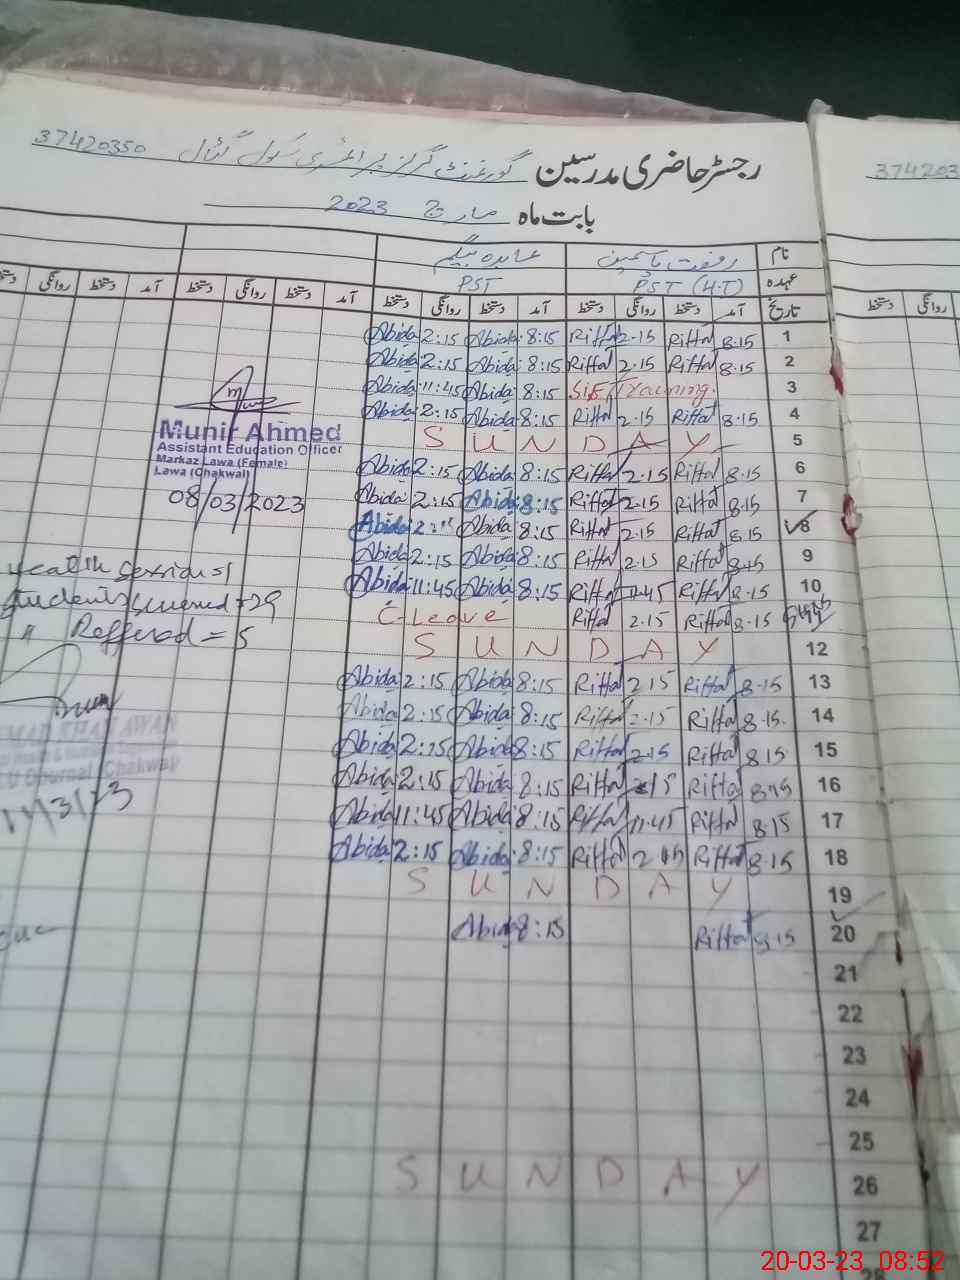 رجسٹر حاضری مدرسین گورنمنٹ گرلز پرائمری سکول گٹال 37420350
بابت ماہ مارچ 2023
نام رفعت یاسمین عابدہ بیگم
عہدہ PST (H.T) PST
تاریخ آمد دستخط روانگی دستخط آمد دستخط روانگی دستخط آمد دستخط روانگی دستخط آمد دستخط روانگی
1 8.15 Riffat 2.15 Riffat 8:15 Abida 2:15 Abida
2 8.15 Riffat 2.15 Riffat 8:15 Abida 2:15 Abida
3 Training. 8:15 Abida 11:45 Abida
4 8.15 Riffat 2.15 Riffat 8:15 Abida 2:15 Abida
5 SUNDAY
6 8.15 Riffat 2.15 Riffat 8:15 Abida 2:15 Abida
7 8.15 Riffat 2.15 Riffat 8:15 Abida 2:15 Abida
8 8.15 Riffat 2.15 Riffat 8:15 Abida Abida
9 8.15 Riffat 2.15 Riffat 8:15 Abida 2:15 Abida
10 8.15 Riffat 11.45 Riffat 8:15 Abida 11:45 Abida
8.15 Riffat 2.15 Riffat C-Leave
12 SUNDAY
13 8.15 Riffat 2.15 Riffat 8:15 Abida 2:15 Abida
14 8.15. Riffat 2.15 Riffat 8:15 Abida 2:15 Abida
15 8.15 Riffat 2.15 Riffat 8:15 Abida 2:15 Abida
16 8.15 Riffat 2.15 Riffat 8:15 Abida 2:15 Abida
17 8.15 Riffat 11.45 Riffat 8:15 Abida 11:45 Abida
18 8.15 Riffat 2.15 Riffat 8:15 Abida 2:15 Abida
19 SUNDAY
20 8.15 Riffat 8:15 Abida
21
22
23
24
25
26 SUNDAY
27
28
Munir Ahmed
Assistant Education Officer
Markaz Lawa (Female)
Lawa (Chakwal)
08/03/2023
Health Session=1
Students Screened = 29
" Reffered = 5
AWAN
(Chakwal)
11/3/23
374203
دستخط روانگی
20-03-23 08:52